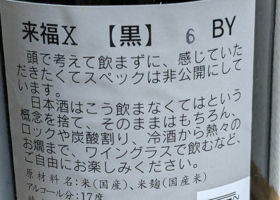 来福X 【黒】 6 BY
頭で考えて飲まずに、感じていた
だきたくてスペックは非公開にして
います。
日本酒はこう飲まなくてはという
概念を捨て、そのままはもちろん、
ロックや炭酸割り、冷酒から熱々の
お燗まで、ワイングラスで飲むなど、
ご自由にお楽しみください。
原材料名:米(国産)、米麹(国産米)
アルコール分:17度